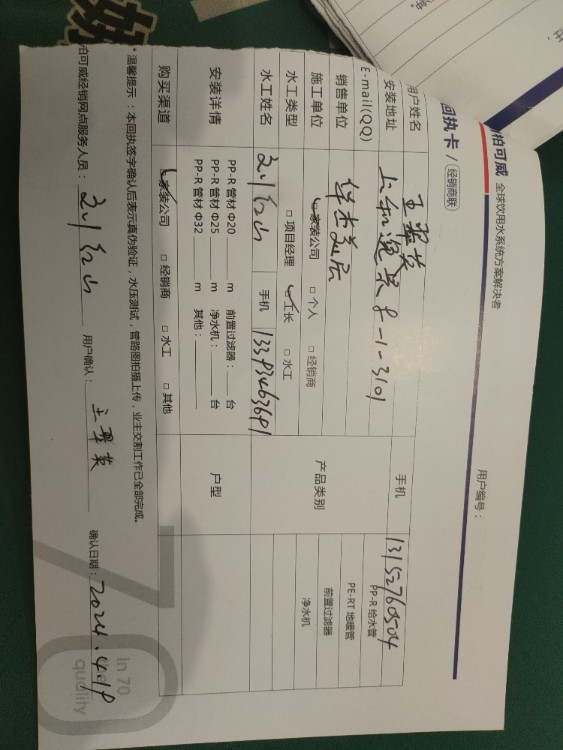 柏可威 全球饮用水系统方案解决者
回执卡 / 经销商联
用户编号：
用户姓名 王翠英 手机 13152760504
安装地址
E-mail(QQ)
销售单位
施工单位 家装公司 □ 个人 □ 经销商
水工类型 □ 项目经理 工长 □ 水工
产品类别
PP-R 给水管
PE-RT 地暖管
前置过滤器
净水机
水工姓名 刘红山 手机 13393463691
安装详情
PP-R 管材 Φ20 m 前置过滤器： 台
PP-R 管材 Φ25 m 净水机： 台
PP-R 管材 Φ32 m 其他：
户型
购买渠道 家装公司 □ 经销商 □ 水工 □ 其他
*温馨提示：本回执签字确认后表示真伪验证，水压测试，管路图拍摄上传，业主交割工作已全部完成。
柏可威经销网点服务人员： 刘红山 用户确认： 王翠英 确认日期： 2024.4.19
70
in 70
quality